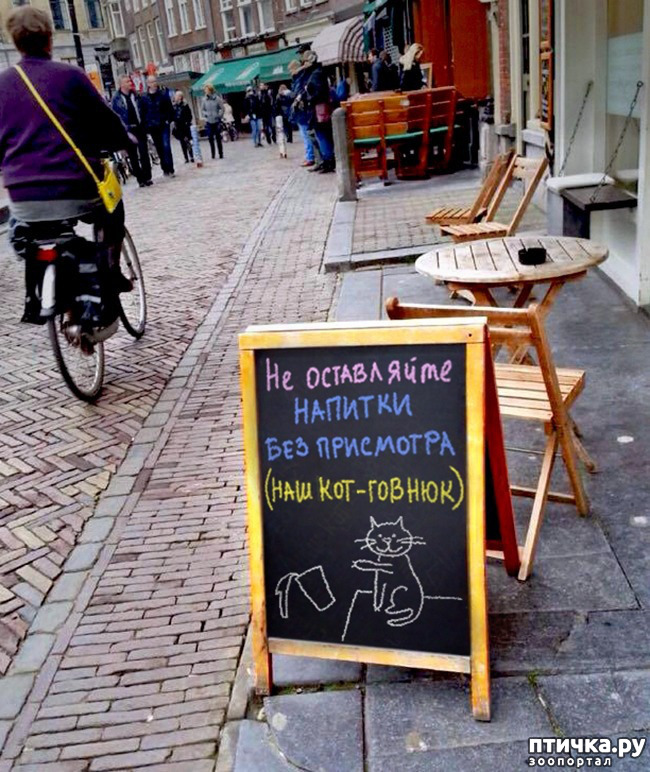 Не оставляйте
напитки
без присмотра
(наш кот-говнюк)
птичка.ру
зоопортал